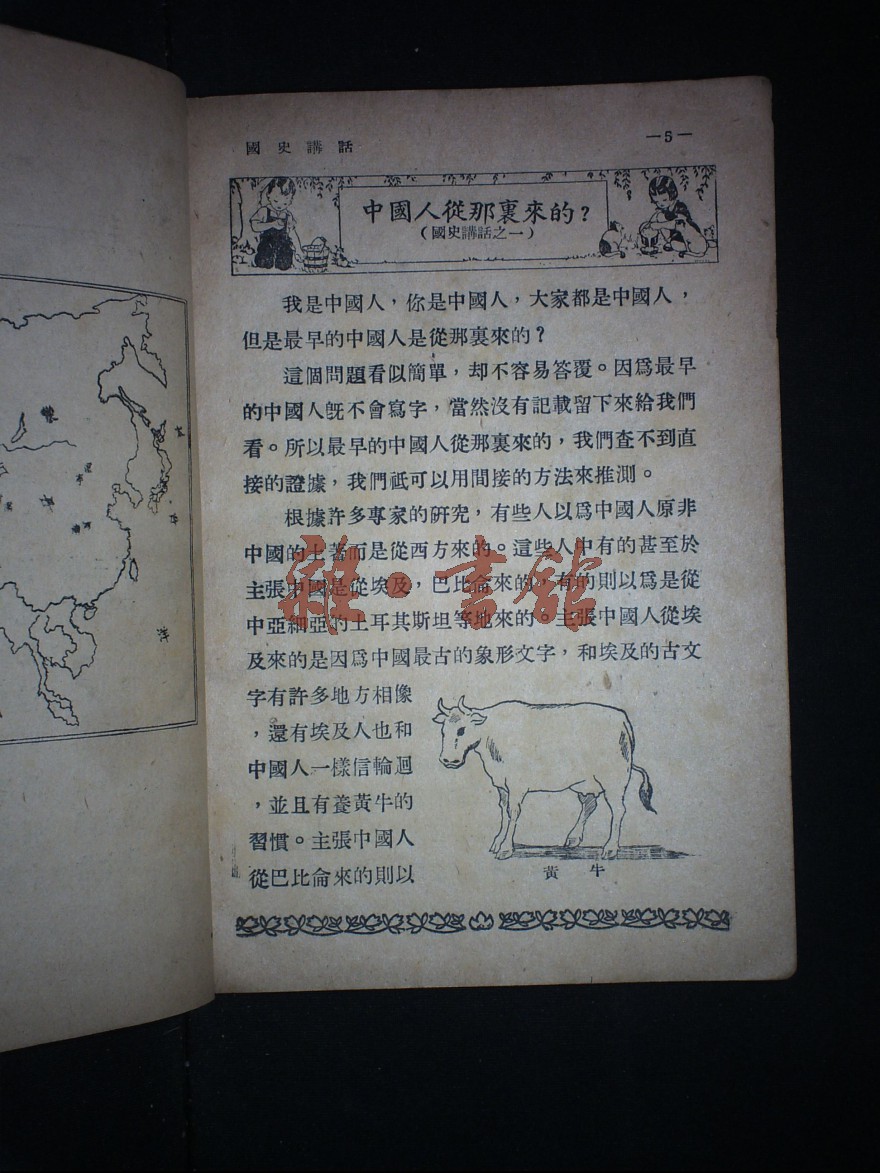 國史講話
—5—
中國人從那裏來的?
(國史講話之一)
我是中國人,你是中國人,大家都是中國人,
但是最早的中國人是從那裏來的?
這個問題看似簡單,却不容易答覆。因爲最早
的中國人旣不會寫字,當然沒有記載留下來給我們
看。所以最早的中國人從那裏來的,我們查不到直
接的證據,我們祗可以用間接的方法來推測。
根據許多專家的研究,有些人以爲中國人原非
中國的土著而是從西方來的。這些人中有的甚至於
主張中國是從埃及,巴比侖來的,有的則以爲是從
中亞細亞的土耳其斯坦等地來的。主張中國人從埃
及來的是因爲中國最古的象形文字,和埃及的古文
字有許多地方相像
,還有埃及人也和
中國人一樣信輪迴
,並且有養黃牛的
習慣。主張中國人
從巴比侖來的則以
黃牛
雜·書館